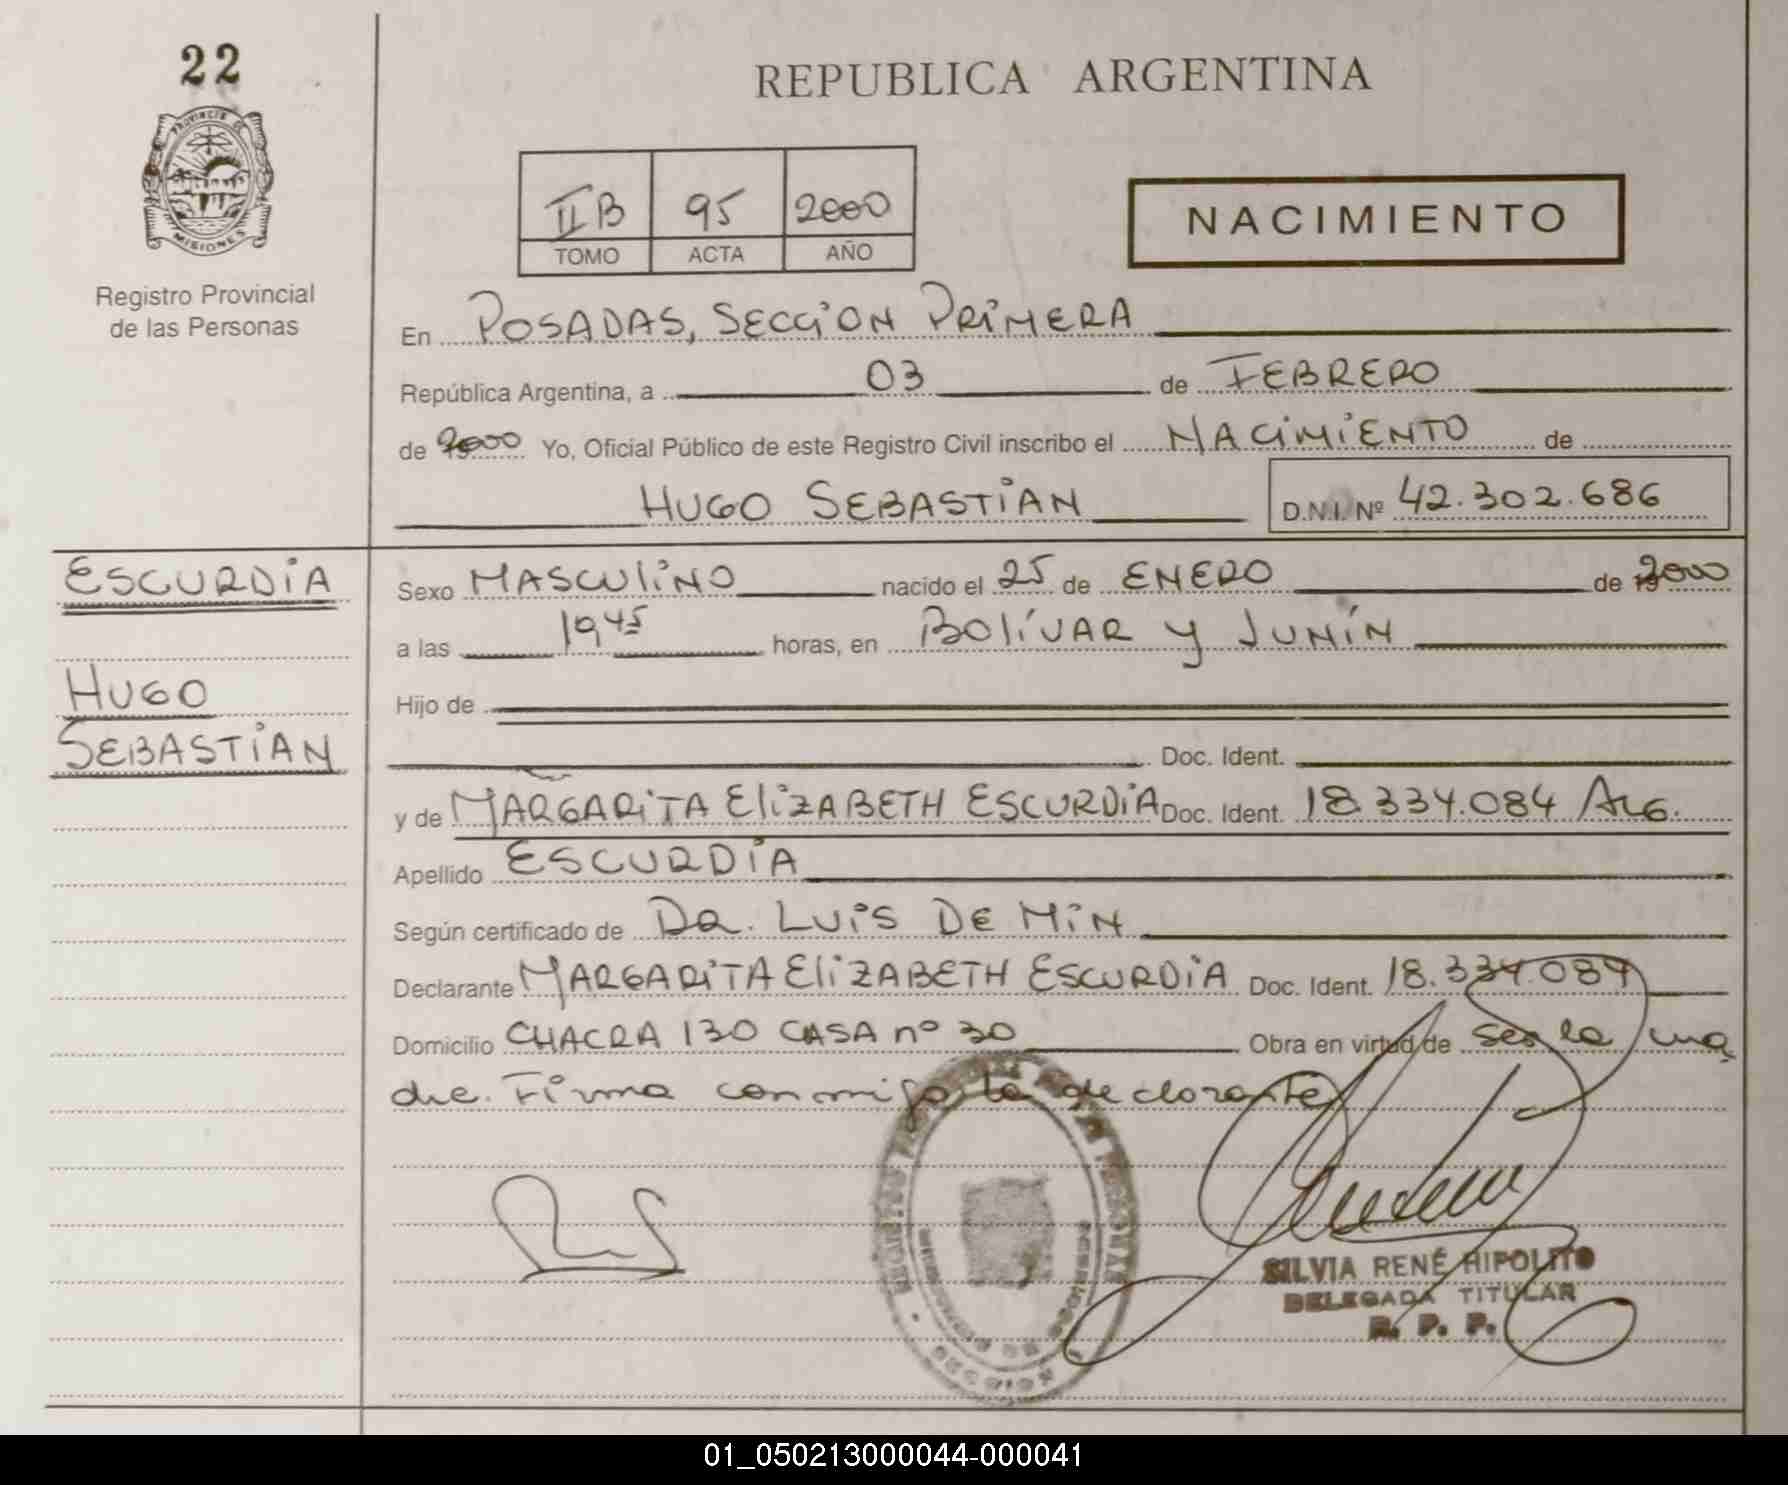 22
PROVINCIA DE
MISIONES
Registro Provincial
de las Personas
REPUBLICA ARGENTINA
II B 95 2000
TOMO ACTA AÑO
NACIMIENTO
En POSADAS, SECCION PRIMERA
República Argentina, a 03 de FEBRERO
de 2000 Yo, Oficial Público de este Registro Civil inscribo el NACIMIENTO de
HUGO SEBASTIAN D.N.I. Nº 42.302.686
ESCURDIA
HUGO
SEBASTIAN
Sexo MASCULINO nacido el 25 de ENERO de 2000
a las 19 45 horas, en BOLÍVAR y JUNÍN
Hijo de
Doc. Ident.
y de MARGARITA ELIZABETH ESCURDIA Doc. Ident. 18.334.084 ARG.
Apellido ESCURDIA
Según certificado de DR. LUIS DE MIN
Declarante MARGARITA ELIZABETH ESCURDIA Doc. Ident. 18.334.084
Domicilio CHACRA 130 CASA nº 30 Obra en virtud de ser la ma
dre. Firma conmigo la declarante
SILVIA RENÉ HIPOLITO
DELEGADA TITULAR
R. P. P.
01_050213000044-000041